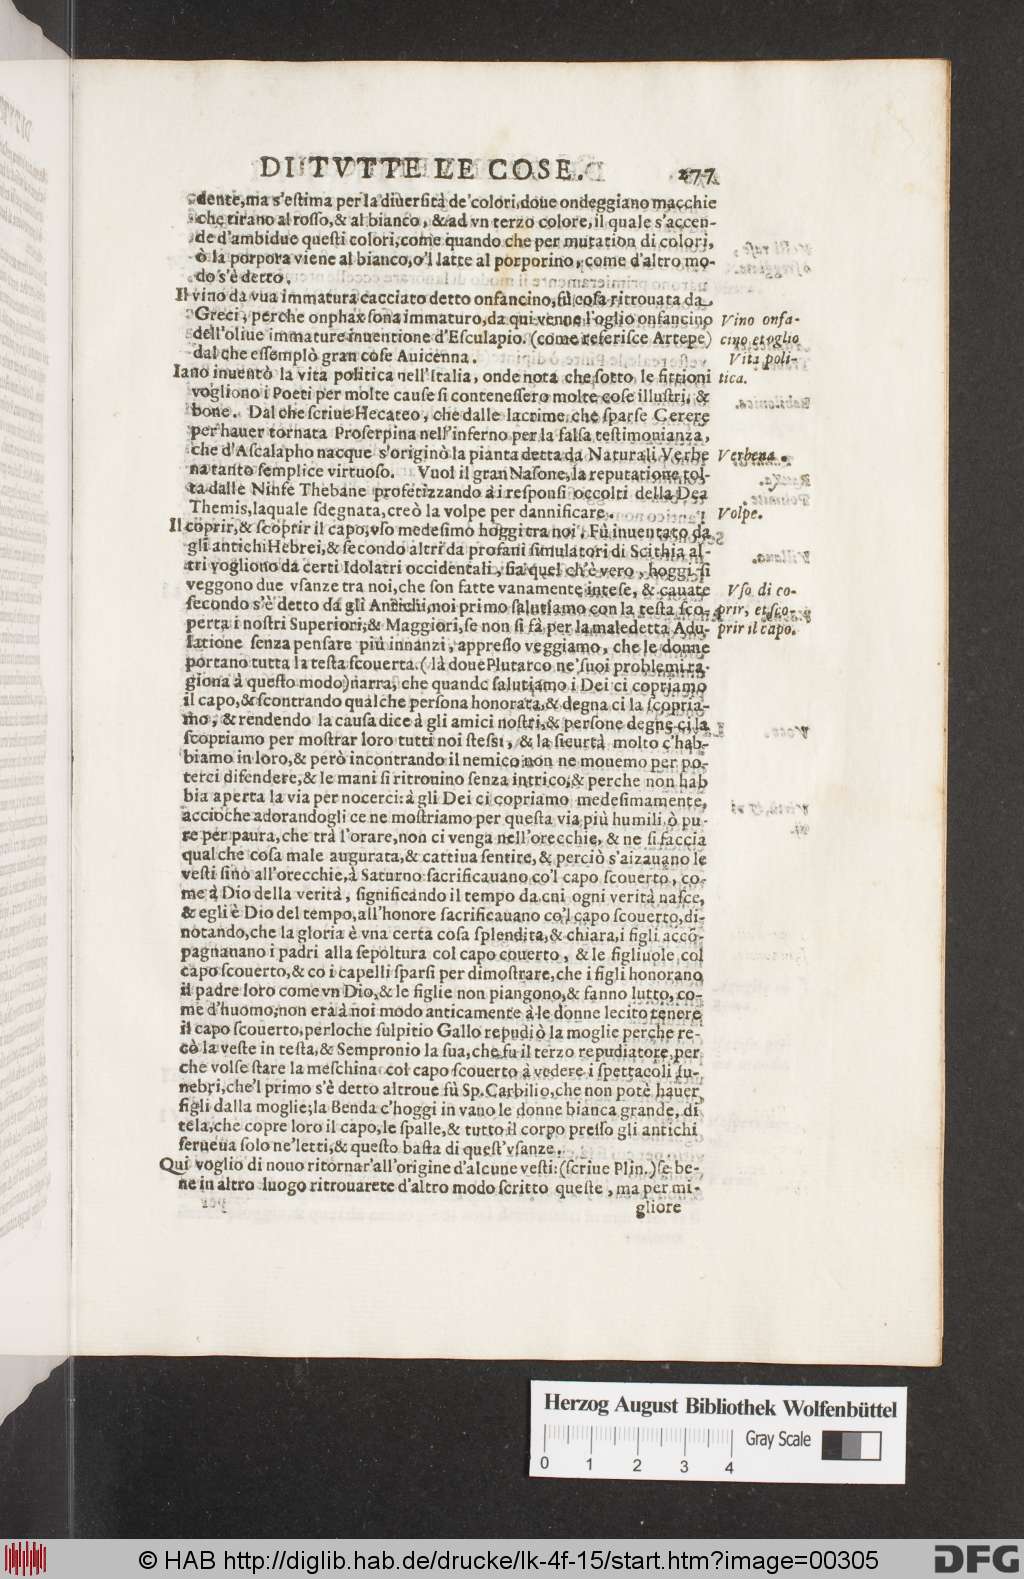 DI TVTTE LE COSE. 277
dente, ma s'estima per la diuersità de' colori, doue ondeggiano macchie
che tirano al rosso, & al bianco, & ad vn terzo colore, il quale s'accen-
de d'ambidue questi colori, come quando che per mutation di colori,
ò la porpora viene al bianco, o'l latte al porporino, come d'altro mo-
do s'è detto.
Il vino da vua immatura cacciato detto onfancino, fù cosa ritrouata da
Greci, perche onphax sona immaturo, da qui venne l'oglio onfancino
dell'oliue immature inuentione d'Esculapio. (come referisce Artepe)
dal che essemplò gran cose Auicenna.
Vino onfa-
cino et oglio
Iano inuentò la vita politica nell'Italia, onde nota che sotto le fittioni
vogliono i Poeti per molte cause si contenessero molte cose illustri, &
bone. Dal che scriue Hecateo, che dalle lacrime che sparse Cerere
per hauer tornata Proserpina nell'inferno per la falsa testimonianza,
che d'Ascalapho nacque s'originò la pianta detta da Naturali Verbe
na tanto semplice virtuoso. Vuol il gran Nasone, la reputatione tol-
ta dalle Ninfe Thebane profetizzando à i responsi occolti della Dea
Themis, laquale sdegnata, creò la volpe per dannificare.
Vita poli-
tica.
Verbena.
Volpe.
Il coprir, & scoprir il capo, vso medesimo hoggi tra noi, Fù inuentato da
gli antichi Hebrei, & secondo altri da profani simulatori di Scithia al-
tri vogliono da certi Idolatri occidentali, sia quel ch'è vero, hoggi si
veggono due vsanze tra noi, che son fatte vanamente intese, & cauate
secondo s'è detto da gli Antichi, noi primo salutiamo con la testa sco-
perta i nostri Superiori, & Maggiori, se non si fà per la maledetta Adu-
latione senza pensare più innanzi, appresso veggiamo, che le donne
portano tutta la testa scouerta. (là doue Plutarco ne' suoi problemi ra-
giona à questo modo) narra, che quando salutiamo i Dei ci copriamo
il capo, & scontrando qualche persona honorata, & degna ci la scopria-
mo, & rendendo la causa dice à gli amici nostri, & persone degne ci la
scopriamo per mostrar loro tutti noi stessi, & la sicurtà molto c'hab-
biamo in loro, & però incontrando il nemico non ne mouemo per po-
terci difendere, & le mani si ritrouino senza intrico, & perche non hab
bia aperta la via per nocerci: à gli Dei ci copriamo medesimamente,
accioche adorandogli ce ne mostriamo per questa via più humili, ò pu-
re per paura, che trà l'orare, non ci venga nell'orecchie, & ne si faccia
qualche cosa male augurata, & cattiua sentire, & perciò s'aizauano le
vesti sino all'orecchie, à Saturno sacrificauano co'l capo scouerto, co-
me à Dio della verità, significando il tempo da cui ogni verità nasce,
& egli è Dio del tempo, all'honore sacrificauano co'l capo scouerto, di-
notando, che la gloria è vna certa cosa splendita, & chiara, i figli accō-
pagnanano i padri alla sepoltura col capo couerto, & le figliuole col
capo scouerto, & co i capelli sparsi per dimostrare, che i figli honorano
il padre loro come vn Dio, & le figlie non piangono, & fanno lutto, co-
me d'huomo, non era à noi modo anticamente à le donne lecito tenere
il capo scouerto, perloche sulpitio Gallo repudiò la moglie perche re-
cò la veste in testa, & Sempronio la sua, che fu il terzo repudiatore, per
che volse stare la meschina col capo scouerto à vedere i spettacoli fu-
nebri, che'l primo s'è detto altroue fù Sp. Carbilio, che non potè hauer
figli dalla moglie, la Benda c'hoggi in vano le donne bianca grande, di
tela, che copre loro il capo, le spalle, & tutto il corpo presso gli antichi
serueua solo ne' letti, & questo basta di quest'vsanze.
Vso di co-
prir, et sco-
prir il capo.
Qui voglio di nouo ritornar'all'origine d'alcune vesti: (scriue Plin.) se be-
ne in altro luogo ritrouarete d'altro modo scritto queste, ma per mi-
gliore
Herzog August Bibliothek Wolfenbüttel
Gray Scale
0 1 2 3 4
© HAB http://diglib.hab.de/drucke/lk-4f-15/start.htm?image=00305
DFG